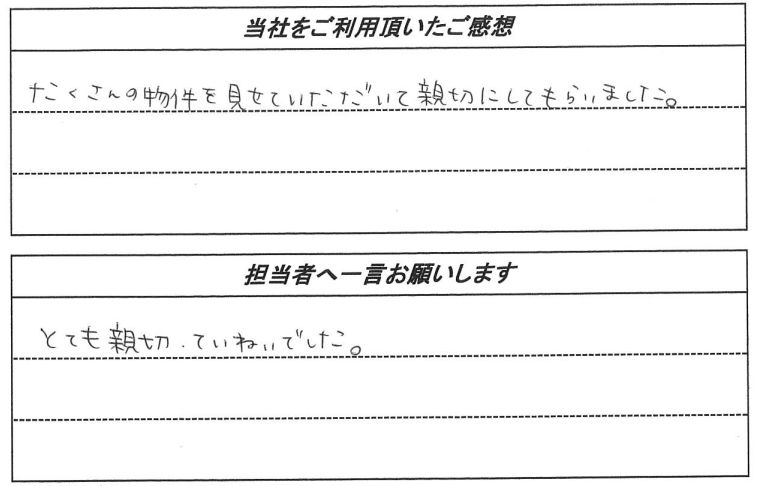 当社をご利用頂いたご感想
たくさんの物件を見せていただいて親切にしてもらいました。
担当者へ一言お願いします
とても親切・ていねいでした。